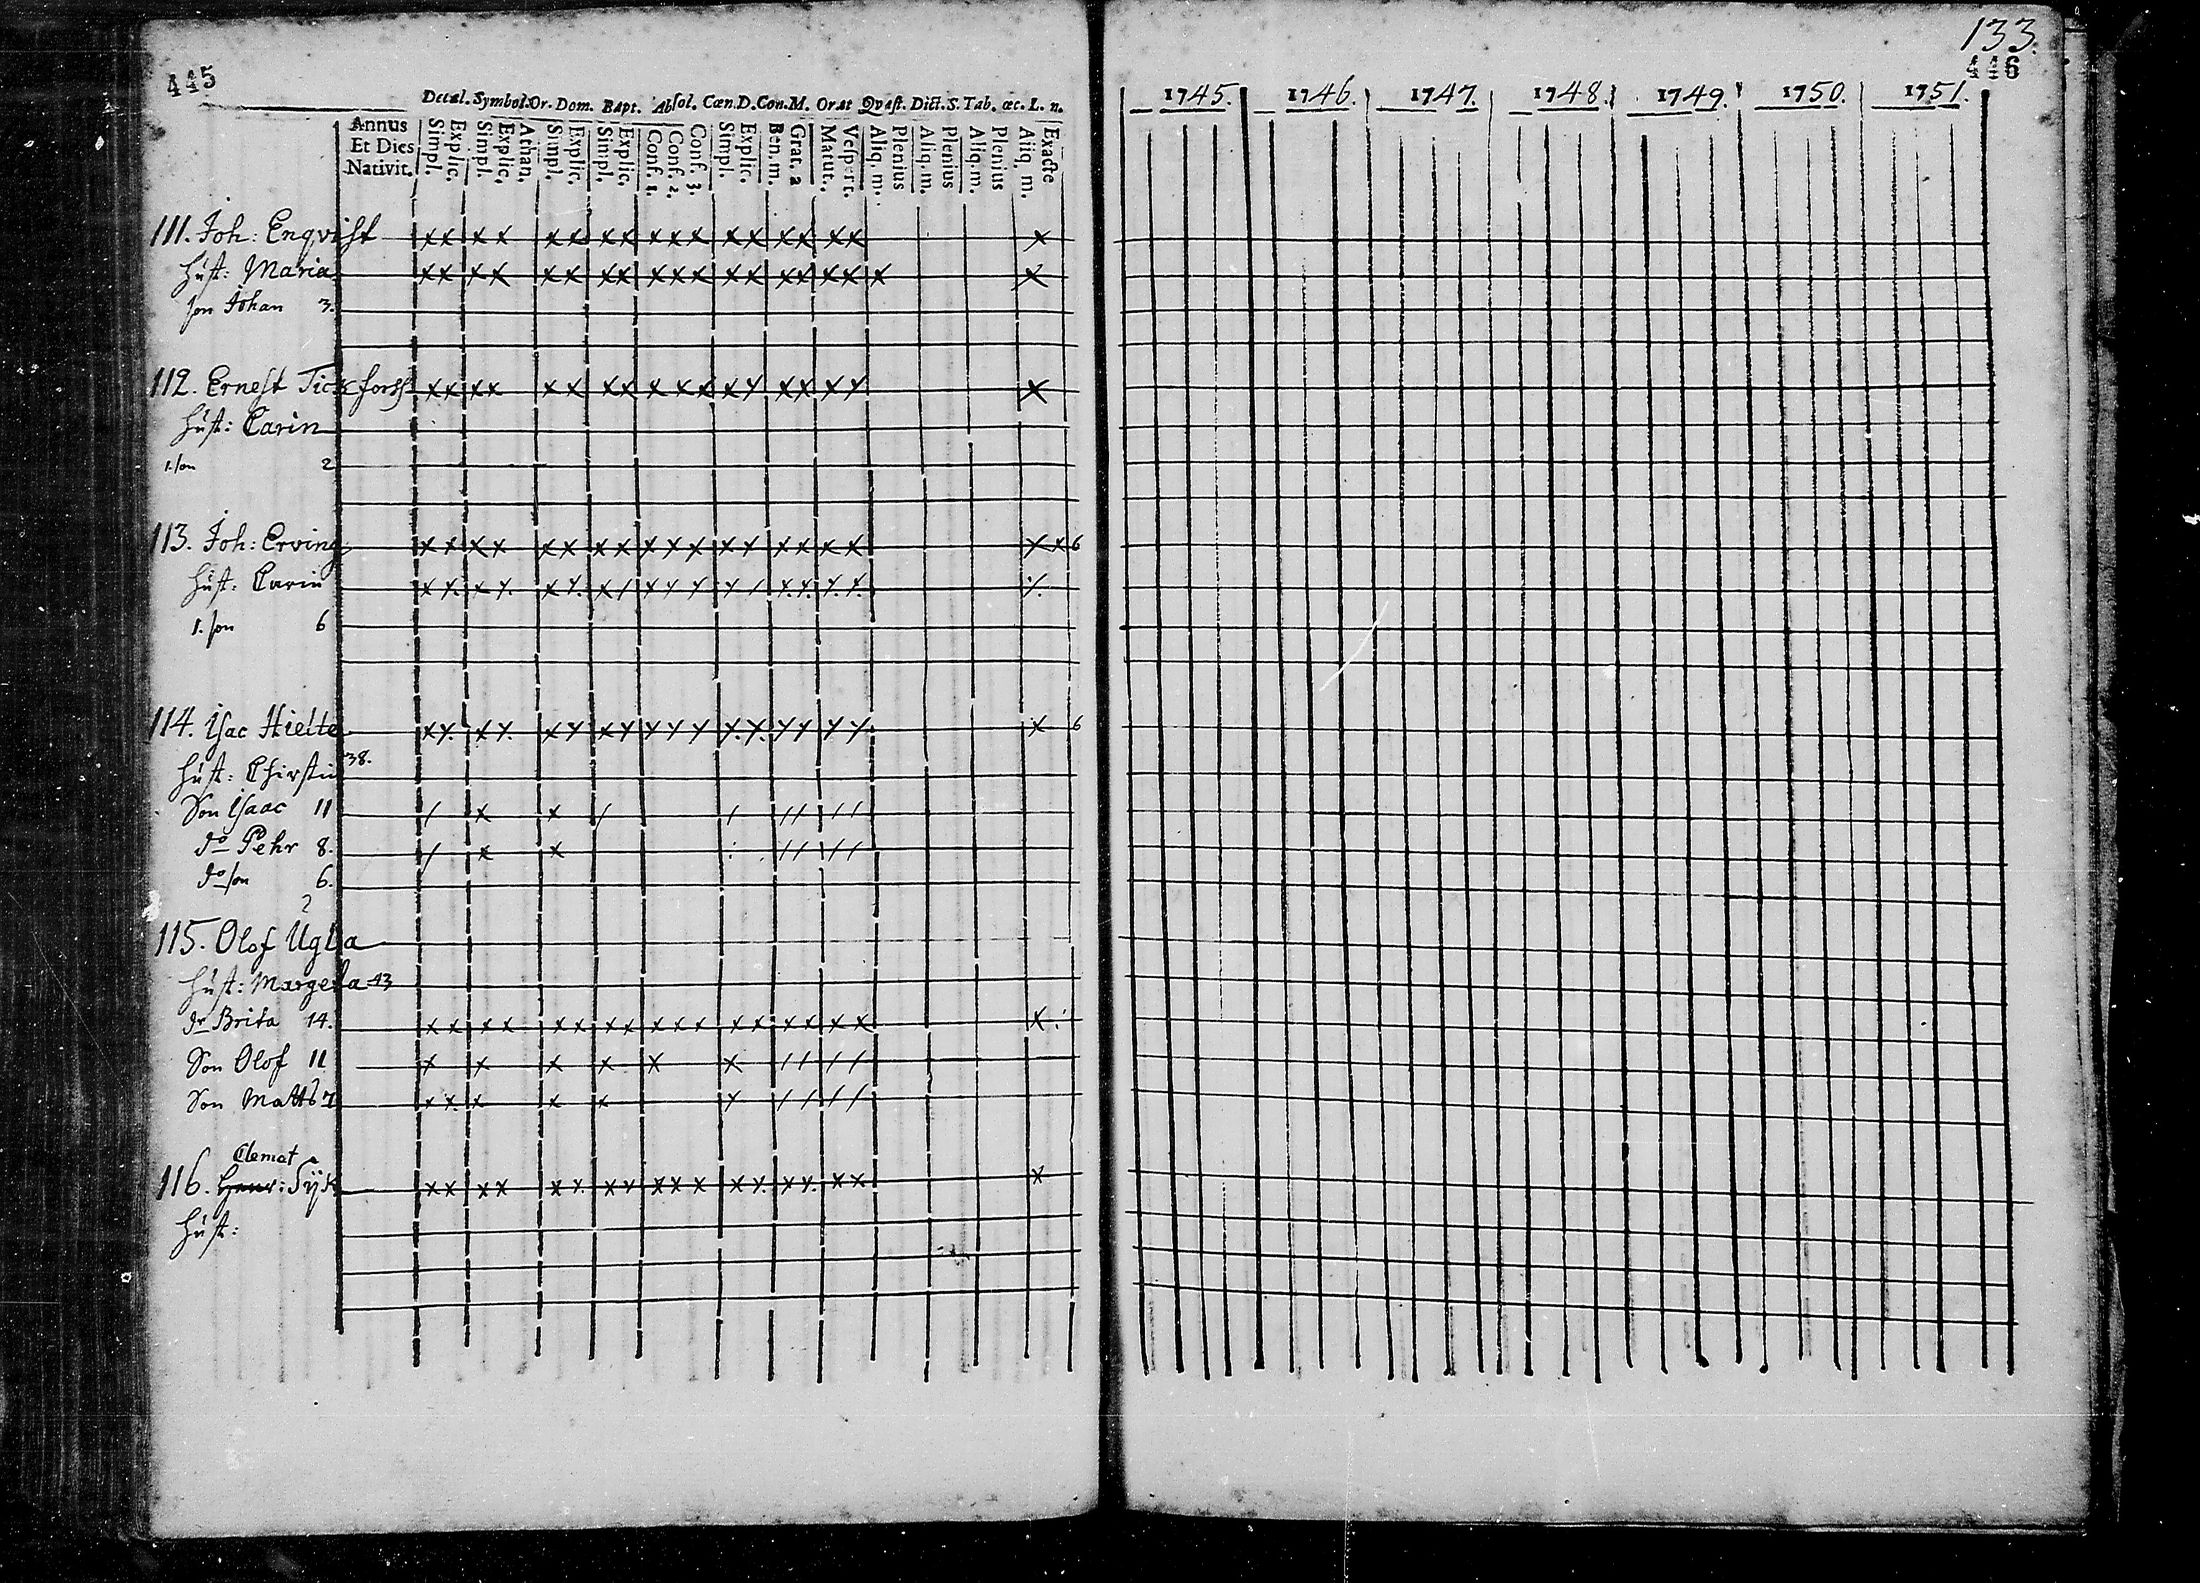 445
Decal. Symbol. Or. Dom. Bapt. Absol. Cœn. D. Con. M. Orat Qvæst. Dict. S. Tab. œc. L. n.
Annus Et Dies Nativit.
Simpl. Explic. Simpl. Explic. Athan. Simpl. Explic. Simpl. Explic. Conf. 1. Conf. 2. Conf. 3. Simpl. Explic. Ben. m. Grat. a Matut. Vespert. Aliq. m. Plenius Aliq. m. Plenius Aliq. m. Plenius Aliq. m. Exacte
111. Joh: Enqvist x x x x x x x x x x x x x x x x x x
Hust: Maria x x x x x x x x x x x x x x x x x x x
son Johan 3.
112. Ernest x x x x x x x x x x x x x x x x x x
Hust: Carin
1. son 2
113. Joh: Erving x x x x x x x x x x x x x x x x x x x 6
Hust: Carin
1. son 6
114. Isac Hielte 6
Hust: Chirstin 38.
Son Isaac 11 / x x / / / / / /
do Pehr 8. / x x / / / /
do son 6.
2
115. Olof Ugla
Hust: Margeta 43
dr Brita 14. x x x x x x x x x x x x x x x x x x
Son Olof 11 x x x x x x / / / /
Son Matts 7
Clemet
116. Henr: x
Hust:
133.
446
1745. 1746. 1747. 1748. 1749. 1750. 1751.